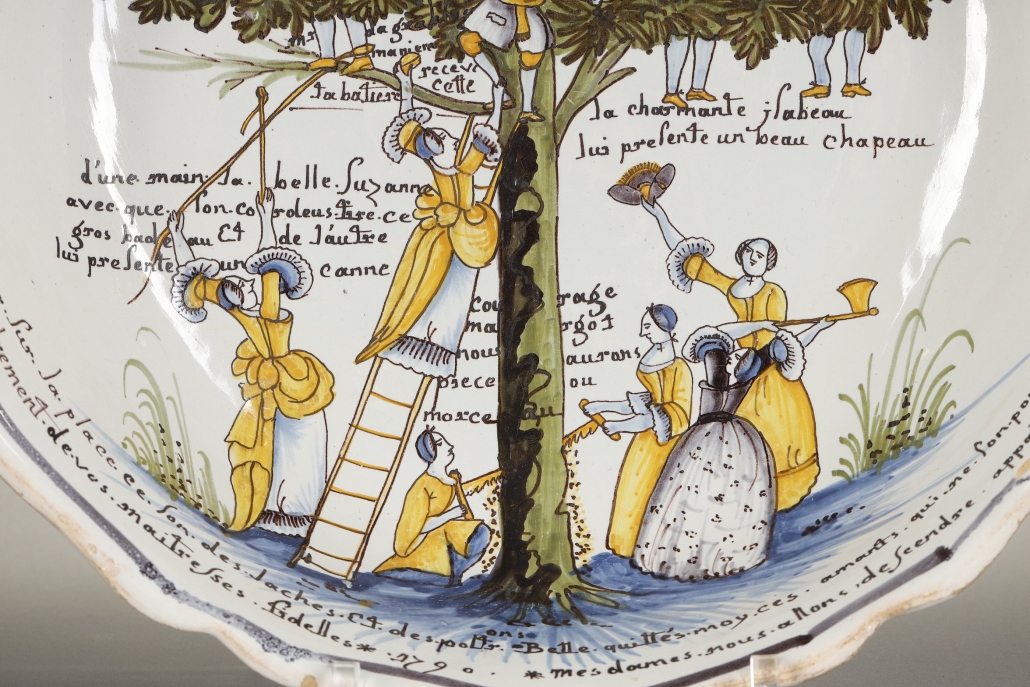 da gra
maniere
recevé
cette
tabatiere
la charmante jsabeau
lui presente un beau chapeau
d'une main. la. belle. Suzanne
avec que. son. cordeus. tire. ce
gros badeau Et de l'autre
lui presente une canne
courage
margot
nous aurons
piece ou
morceau
sur. la place. ce. son. des. laches. Et. des. poltrons Belle. quittés. moy. ces. amants. qui. ne. son. pa
dement. de vos. maitresse. fidelles * 1790. * mes dames. nous. allons. descendre. appa